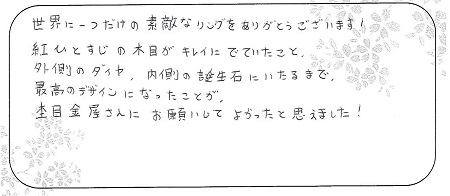 世界に一つだけの素敵なリングをありがとうございます!
紅ひとすじの木目がキレイにでていたこと、
外側のダイヤ、内側の誕生石にいたるまで、
最高のデザインになったことが、
杢目金屋さんにお願いしてよかったと思えました!